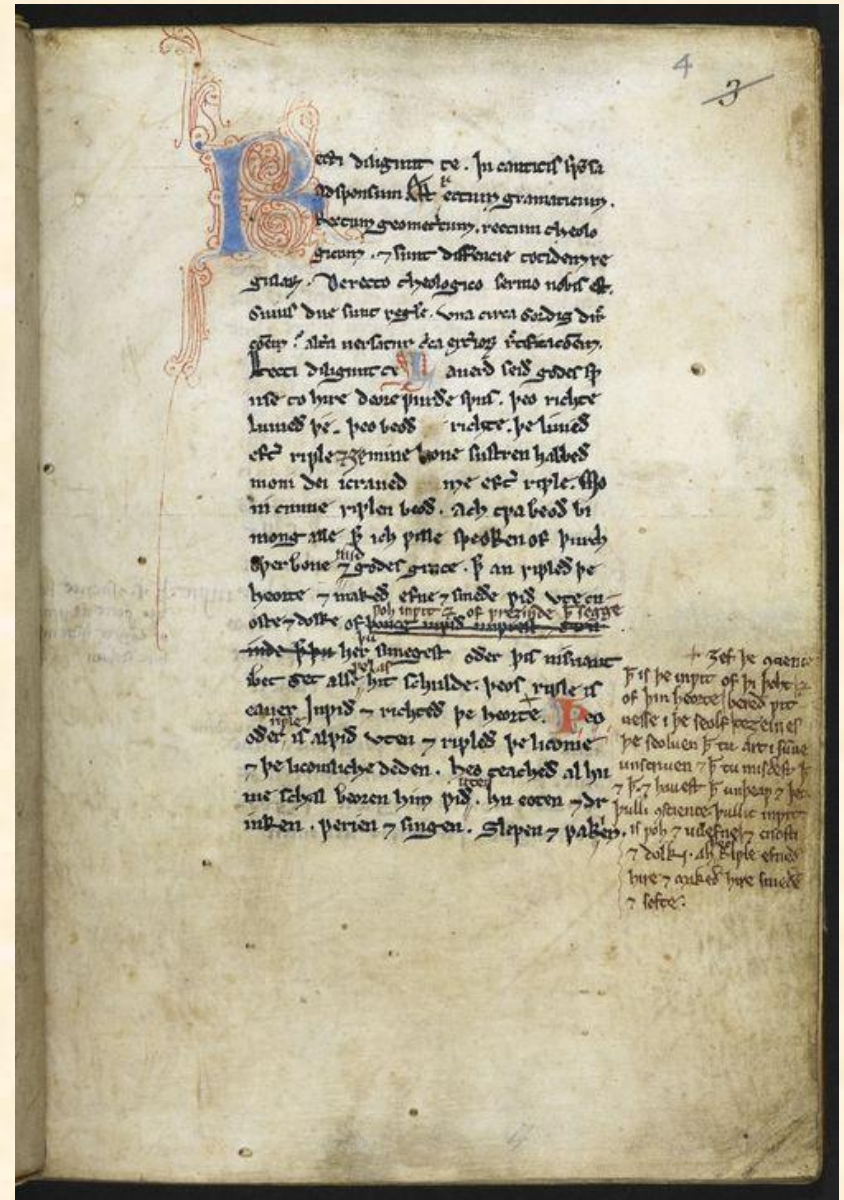 4
3
Recti diligunt te. In canticis spōsa
ad sponsum Est rectum gramaticum.
Rectum geometricum. rectum theolo
gicum. ⁊ sunt differencie totidem re
gularum. De recto theologico sermo nobis est.
cuius due sunt regle. Vna circa cordis dir
Recti diligunt te Lauerd seið godes sp
use to hire deore ƿurðe spus. þeo richte
luuieð þe. þeo beoð richte. þe luuieð
efter riƿle ⁊ ȝe mine leoue sustren habbeð
moni dei icraued me efter riƿle. Mo
ni cunne riƿlen beoð. Ach tƿa beoð bi
mong alle þ̄ ich ƿille speoken of þurch
ower bone ⁊ godes grace. þ̄ an riƿleð þe
heorte ⁊ makeð efne ⁊ smeðe ƿið ute cn
oste ⁊ dolke of
her sunegest oðer þis nis naut
ibet ȝet alse hit schulde. þeos riƿle is
eauer Inƿið ⁊ richteð þe heorte. Þeo
oðer is al ƿið uten ⁊ riƿleð þe licome
⁊ þe licomliche deden. heo teacheð al hu
me schal beoren him ƿið uten. hu eoten ⁊ dr
inken. ƿerien ⁊ singen. Slepen ⁊ ƿakien.
ȝef þe
þ̄ is þe inƿit of þi þoht ⁊
of þin heorte bereð ƿit
nesse i þe seolf teȝeines
þe seoluen þ̄ tu art i sunne
unscriuen ⁊ þ̄ tu misdest þ̄
⁊ þ̄. ⁊ hauest þ̄ unþeaƿ ⁊ þet.
þulli þullic inƿit
is ƿoh ⁊ unefne ⁊ cnosti
⁊ dolki. ah riƿle efneð
hire ⁊ makeð hire smeðe
⁊ softe.